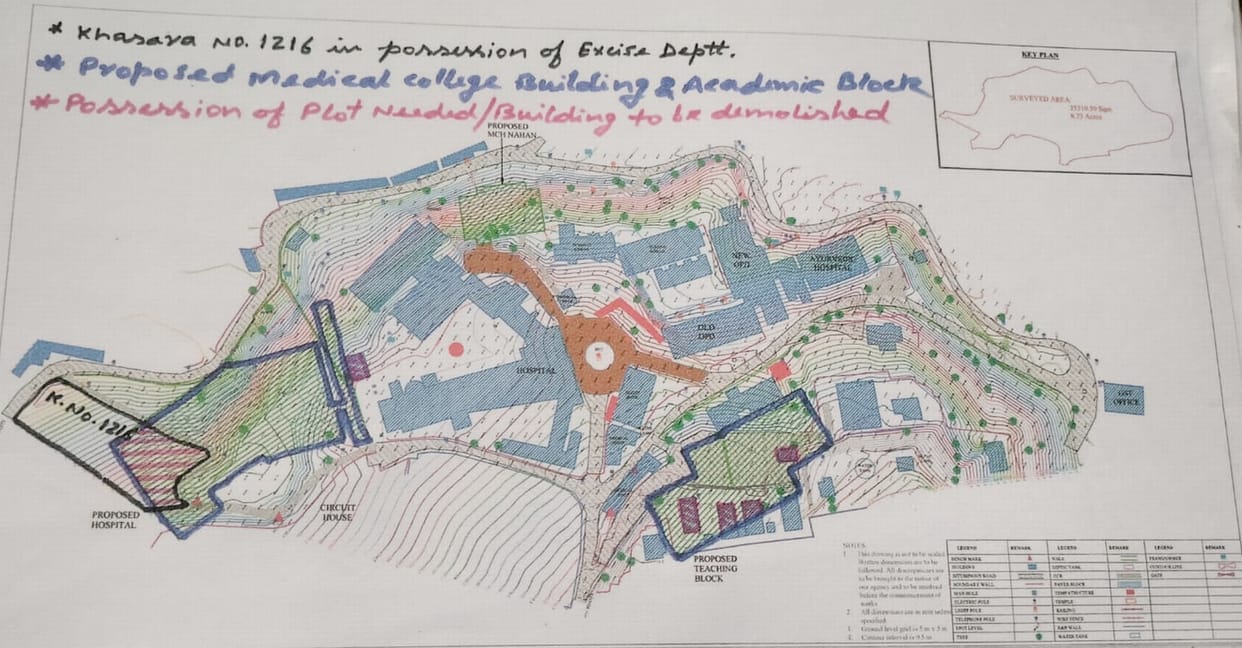 * Khasara NO. 1216 in possession of Excise Deptt.
* Proposed Medical college Building & Academic Block
* Possession of Plot Needed/Building to be demolished
KEY PLAN
SURVEYED AREA:
8.73 Acres
PROPOSED
MCH NAHAN
NEW
OPD
AYURVEDIC
HOSPITAL
OLD
OPD
HOSPITAL
GST
OFFICE
K.NO.1216
PROPOSED
HOSPITAL
CIRCUIT
HOUSE
PROPOSED
TEACHING
BLOCK
NOTES
1 This drawing is not to be scaled.
Written dimensions are to be
followed. All discrepancies are
to be brought to the notice of
our agency and to be resolved
before the commencement of
works
2. All dimensions are in mt unless
specified
Ground level grid is 5 m x 5 m
Contour interval is 0.5 m
LEGEND REMARK LEGEND REMARK LEGEND REMARK
BENCH MARK WALL TRANSFORMER
BUILDING SEPTIC TANK CONTOUR LINE
BITUMINOUS ROAD GATE
BOUNDARY WALL PAVER BLOCK
MAN HOLE TEMP STRUCTURE
ELECTRIC POLE TEMPLE
LIGHT POLE RAILING
TELEPHONE POLE WIRE FENCE
SPOT LEVEL
TREE WATER TANK